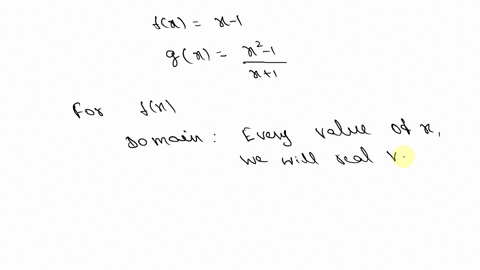 f(x) = x-1
g(x) = x²-1 / x+1
For f(x)
Domain : Every value of x,
we will real v